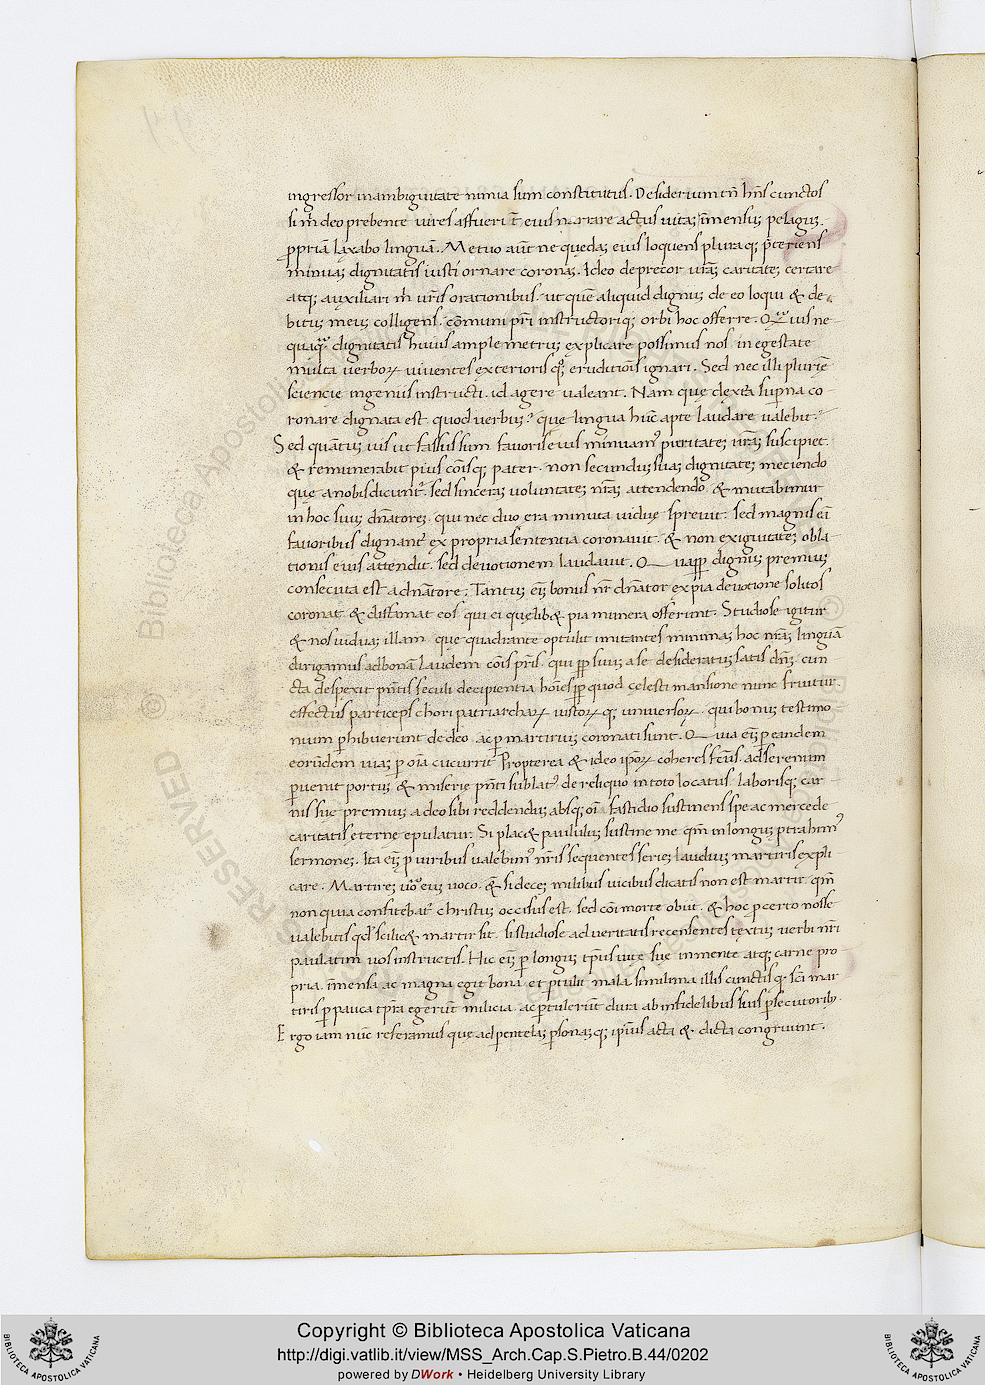 ingressor in ambiguitate nimia sum constitutus. Desiderium tñ hñs cunctos
si m̃ deo prebente uires affuerĩt eius narrare actus uitaȝ ĩmensuȝ pelaguȝ
ꝓpriã laxabo linguã. Metuo aũt ne quędaȝ eius loquens pluraqȝ p̃teriens
minuaȝ dignitatis iusti ornare coronaȝ. Ideo deprecor ur̃aȝ caritateȝ certare
atqȝ auxiliari m̃ ur̃is orationibus. ut queã aliquid dignuȝ de eo loqui & de
bituȝ meuȝ colligens. cõmuni pr̃i instructoriqȝ orbi hoc offerre. Quis ne
quaquã dignitatis huius ample metruȝ explicare possimus nos. in egestate
multa uerboꝝ uiuentes exterioris qȝ eruditiõis ignari. Sed nec illi plurię
sciencie ingeniis instructi. id agere ualeant. Nam quę dextera sup̃na co
ronare dignata est. quod uerbuȝ? que lingua hũc apte laudare ualebit?
Sed quãtuȝ uis ut fassus sum fauoris eius minuamꝰ puritateȝ ur̃aȝ suscipiet.
& remunerabit pius cõisqȝ pater. non secunduȝ suaȝ dignitateȝ meciendo
quę a nobis dicunt᷑. sed sinceraȝ uoluntateȝ nr̃aȝ attendendo. & mutabimur
in hoc suuȝ dñatoreȝ. qui nec duo era minuta uiduę spreuit. sed magnis eã
fauoribus dignant᷑ ex propria sententia coronauit. & non exiguitateȝ obla
tionis eius attendit. sed deuotionem laudauit. Quapp̱ dignuȝ premiuȝ
consecuta est a dñatore. Tantuȝ eȝ bonus nr̃ dñator ex pia deuotione solitos
coronat. & diffamat eos. qui ei quelib& pia munera offerunt. Studiose igitur
& nos uiduaȝ illam. que quadrante optulit imitantes minimaȝ hoc nr̃aȝ linguã
dirigamus ad bonã laudem cõis pr̃is. qui pp̱ suuȝ a se desideratuȝ satis dñȝ. cun
cta despexit p̃ntis seculi decipientia hoĩes pp̱ quod celesti mansione nunc fruitur
effectus particeps chori patriarchaꝝ iustoꝝ qȝ uniuersoꝝ. qui bonuȝ testimo
nium ꝑhibuerunt de deo. ac ꝑ martirium coronati sunt. Quia eȝ ꝑ eandem
eorũdem uiaȝ ꝑ oĩa cucurrit Propterea & ideo ip̃oꝝ coheres fc̃us. ad serenum
ꝑuenit portuȝ & miserie p̃nti sublatꝰ de reliquo in toto locatus. laborisqȝ car
nis suę premiuȝ a deo sibi reddenduȝ absqȝ oĩ fastidio sustinens spe ac mercede
caritatis eterne epulatur. Si plac& paululuȝ sustine me qm̃ in longuȝ ꝓtrahimꝰ
sermoneȝ. Ita eȝ ꝓ uiribus ualebimꝰ nr̃is sequentes serieȝ laudum martiris expli
care. Martireȝ uõ eum uoco. & si deceȝ milibus uicibus dicatis non est martir. qm̃
non quia confitebat᷑ christuȝ occisus est. sed cõi morte obiit. & hoc ꝑ certo nosse
ualebitis qd̃ scilic& martir sit. si studiose ad ueritatis recensentes textuȝ uerbi nr̃i
paulatim uos instructis. Hic eȝ ꝑ longuȝ tp̃us uite suę in mente atqȝ carne pro
pria. ĩmensa ac magna egit bona. et ptulit mala similima illis cunctis qȝ sc̃i mar
tires ꝑ pauca tp̃ra egerũt milicia. ac ꝑtulerũt dura ab infidelibus suis ꝑsecutoribꝰ.
Ergo iam nũc referamus que ad penteląȝ ꝑsonaȝqȝ ip̃ius acta & dicta congruunt.
Copyright © Biblioteca Apostolica Vaticana
http://digi.vatlib.it/view/MSS_Arch.Cap.S.Pietro.B.44/0202
powered by DWork • Heidelberg University Library